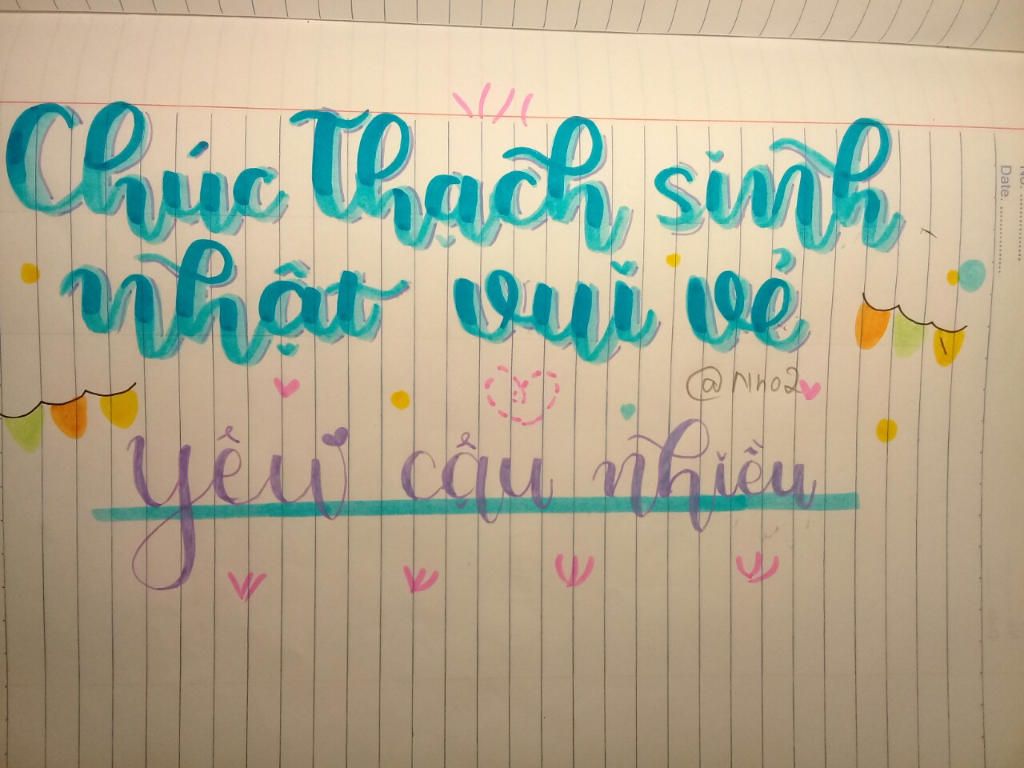 Chúc Thạch sinh
nhật vui vẻ
@Nho2
yêu cậu nhiều
No. ....................
Date. ....................